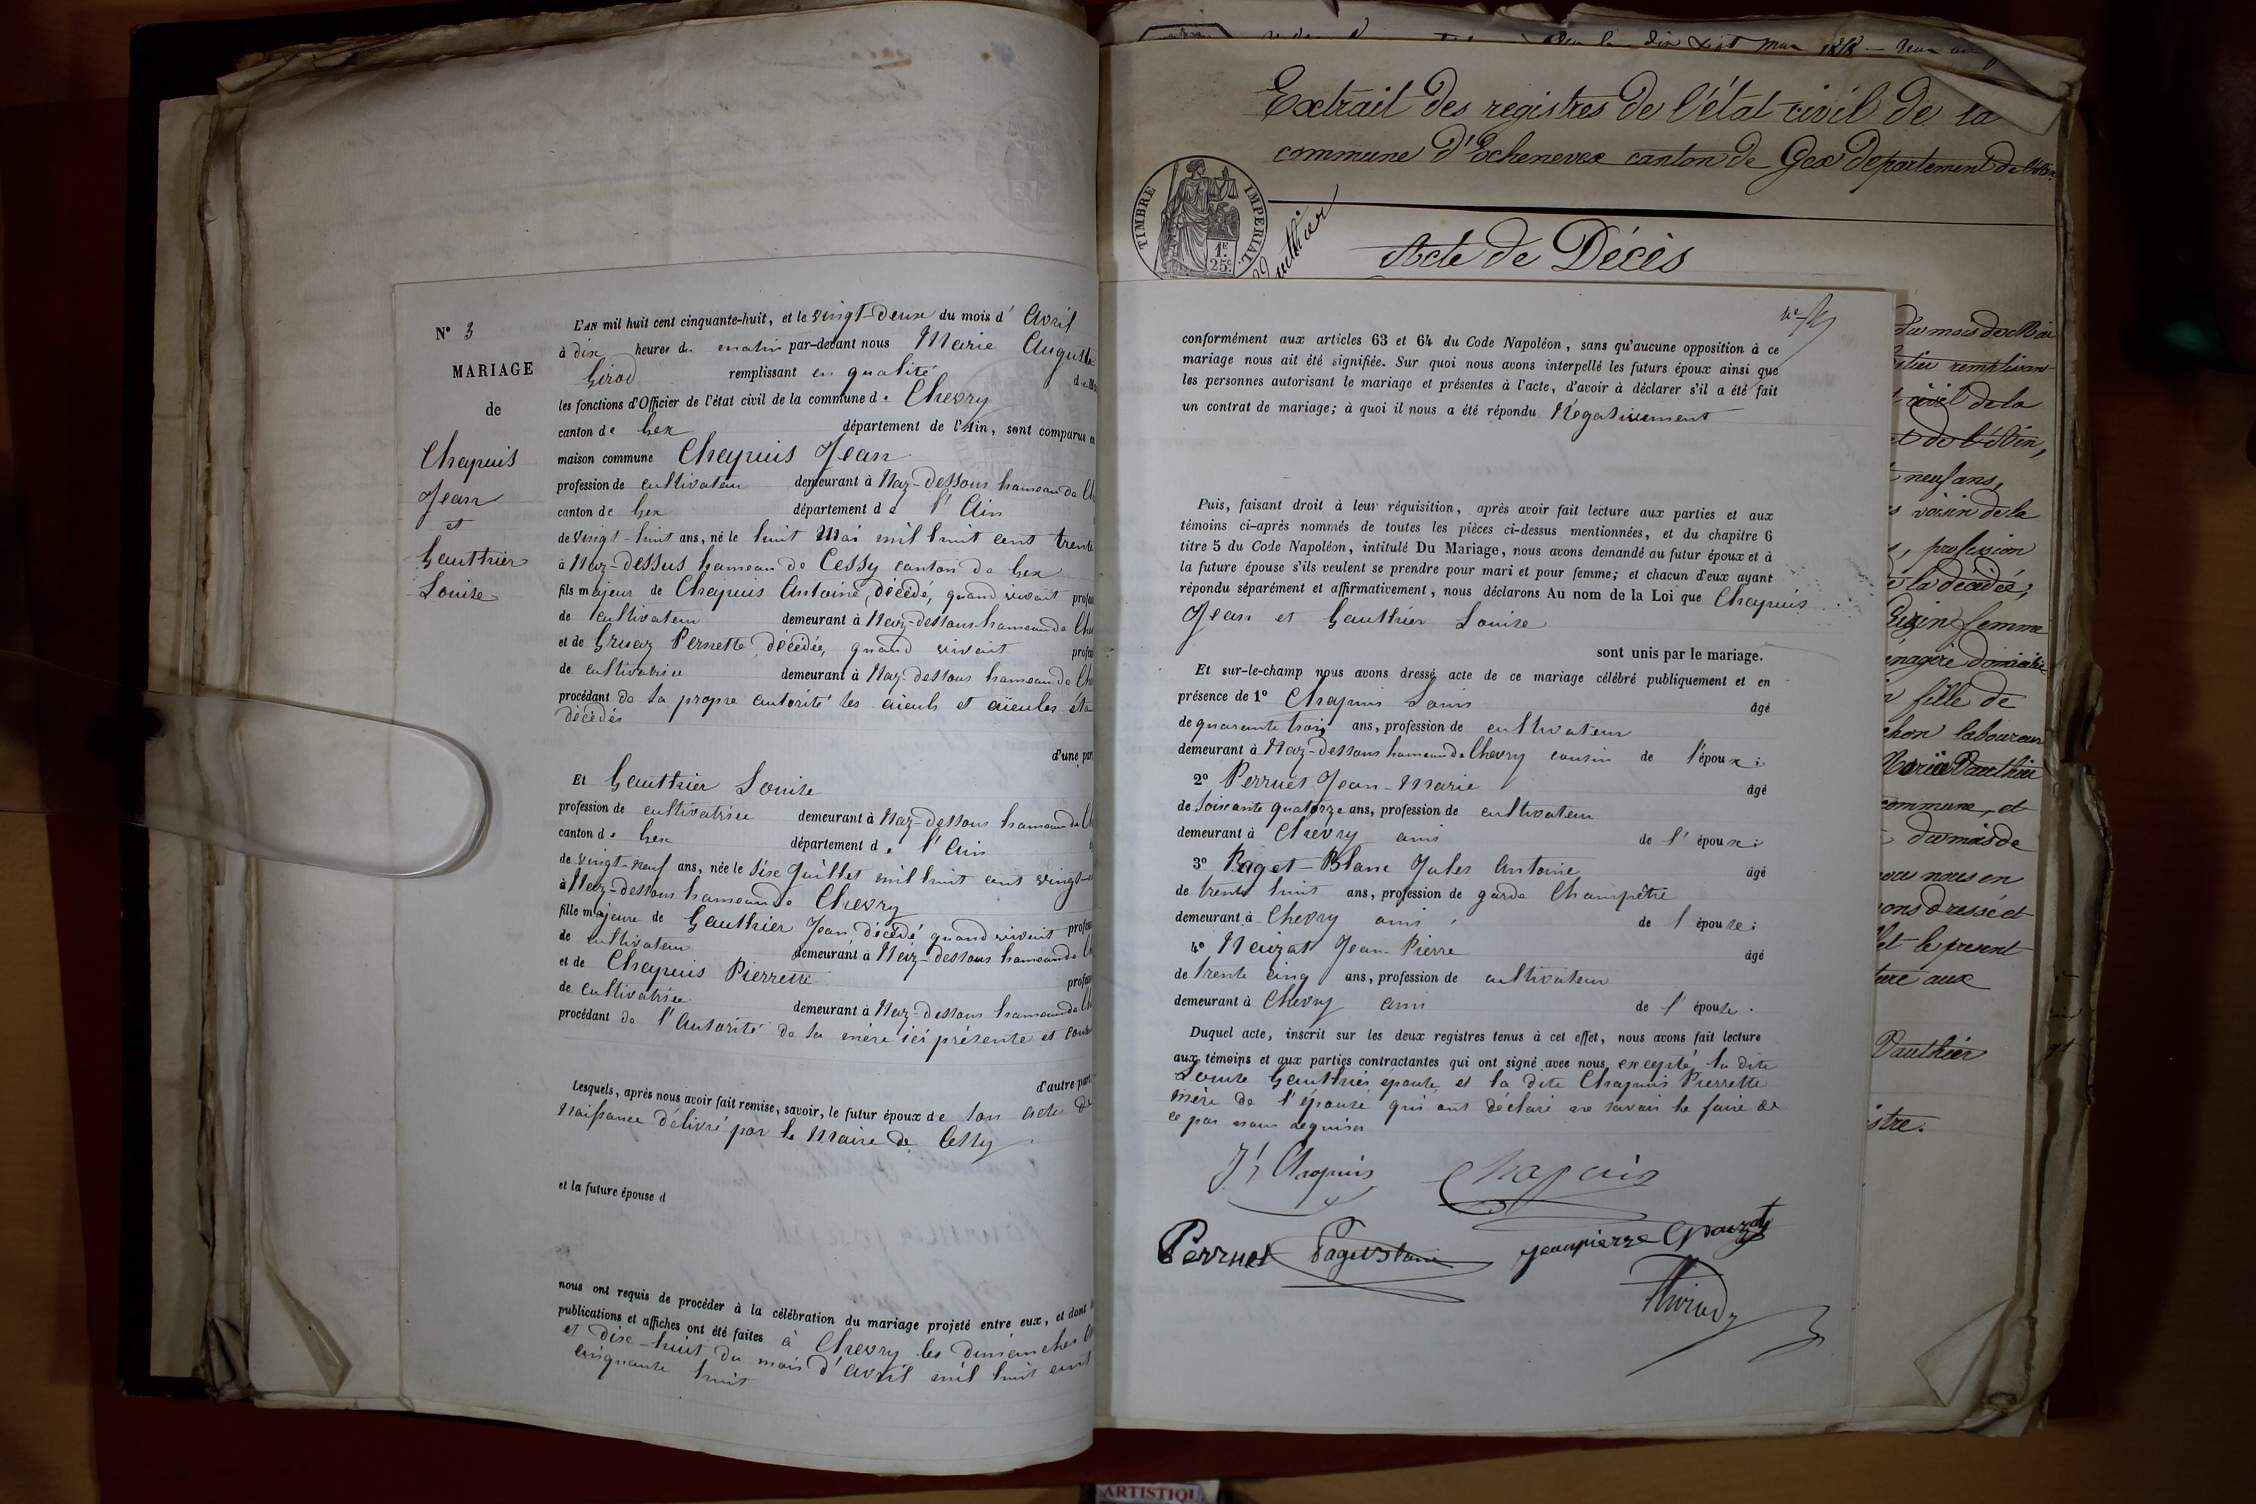 N° 3
MARIAGE
de
Chapuis
Jean
et
Gauthier
Louise
L'AN mil huit cent cinquante-huit, et le vingt-deux du mois d' Avril
à dix heures du matin par-devant nous Marie Auguste
Girod remplissant en qualité
les fonctions d'Officier de l'état civil de la commune de Chevry
canton de Gex département de l'Ain, sont comparus en
maison commune Chapuis Jean
profession de cultivateur demeurant à Naz-dessous hameau de
canton de Gex département de l'Ain
de vingt-huit ans, né le huit Mai mil huit cent trente
à Naz-dessus hameau de Cessy canton de Gex
fils majeur de Chapuis Antoine, décédé, quand vivait
de cultivateur demeurant à Naz-dessous hameau de
et de Gruaz Pernette décédée, quand vivait
de cultivatrice demeurant à Naz-dessous hameau de
procédant de sa propre autorité ses aïeuls et aïeules
décédés
d'une part
Et Gauthier Louise
profession de cultivatrice demeurant à Naz-dessous hameau de
canton de Gex département de l'Ain
de vingt-neuf ans, née le six Juillet mil huit cent vingt
à Naz-dessous hameau de Chevry
fille majeure de Gauthier Jean décédé quand vivait
de cultivateur demeurant à Naz-dessous hameau de
et de Chapuis Pierrette
de cultivatrice demeurant à Naz-dessous hameau de
procédant de l'Autorité de sa mère ici présente et
d'autre part
Lesquels, après nous avoir fait remise, savoir, le futur époux de son acte de
Naissance délivré par le Maire de Cessy
et la future épouse d
nous ont requis de procéder à la célébration du mariage projeté entre eux, et dont
publications et affiches ont été faites à Chevry les dimanches
et dix-huit du mois d'avril mil huit cent
cinquante huit
conformément aux articles 63 et 64 du Code Napoléon, sans qu'aucune opposition à ce
mariage nous ait été signifiée. Sur quoi nous avons interpellé les futurs époux ainsi que
les personnes autorisant le mariage et présentes à l'acte, d'avoir à déclarer s'il a été fait
un contrat de mariage; à quoi il nous a été répondu Négativement
Puis, faisant droit à leur réquisition, après avoir fait lecture aux parties et aux
témoins ci-après nommés de toutes les pièces ci-dessus mentionnées, et du chapitre 6
titre 5 du Code Napoléon, intitulé Du Mariage, nous avons demandé au futur époux et à
la future épouse s'ils veulent se prendre pour mari et pour femme; et chacun d'eux ayant
répondu séparément et affirmativement, nous déclarons Au nom de la Loi que Chapuis
Jean et Gauthier Louise
sont unis par le mariage.
Et sur-le-champ nous avons dressé acte de ce mariage célébré publiquement et en
présence de 1° Chapuis Louis âgé
de quarante trois ans, profession de cultivateur
demeurant à Naz-dessous hameau de Chevry cousin de l'époux;
2° Perruet Jean-Marie âgé
de soixante quatorze ans, profession de cultivateur
demeurant à Chevry ami de l'époux;
3° Paget-Blanc Jules Antoine âgé
de trente huit ans, profession de garde Champêtre
demeurant à Chevry ami de l'épouse;
4° Jean Pierre âgé
de trente cinq ans, profession de cultivateur
demeurant à Chevry ami de l'épouse.
Duquel acte, inscrit sur les deux registres tenus à cet effet, nous avons fait lecture
aux témoins et aux parties contractantes qui ont signé avec nous, excepté la dite
Louise Gauthier épouse, et la dite Chapuis Pierrette
mère de l'épouse qui ont déclaré ne savoir le faire de
ce par nous requises
Chapuis Chapuis
Perruet Pagetblanc jeanpierre
Extrait des registres de l'état-civil de la
commune d'Echenevex canton de Gex département de l'Ain
TIMBRE IMPERIAL
1F
25c
Acte de Décès
du mois de Mai
remplissant
civil de la
de l'Ain,
neuf ans,
voisin de la
profession
la décédée,
femme
ménagère domiciliée
fille de
laboureur
Maria Vauthier
commune, et
du mois de
nous en
dressé et
le présent
aux
Vauthier
ARTISTIQU